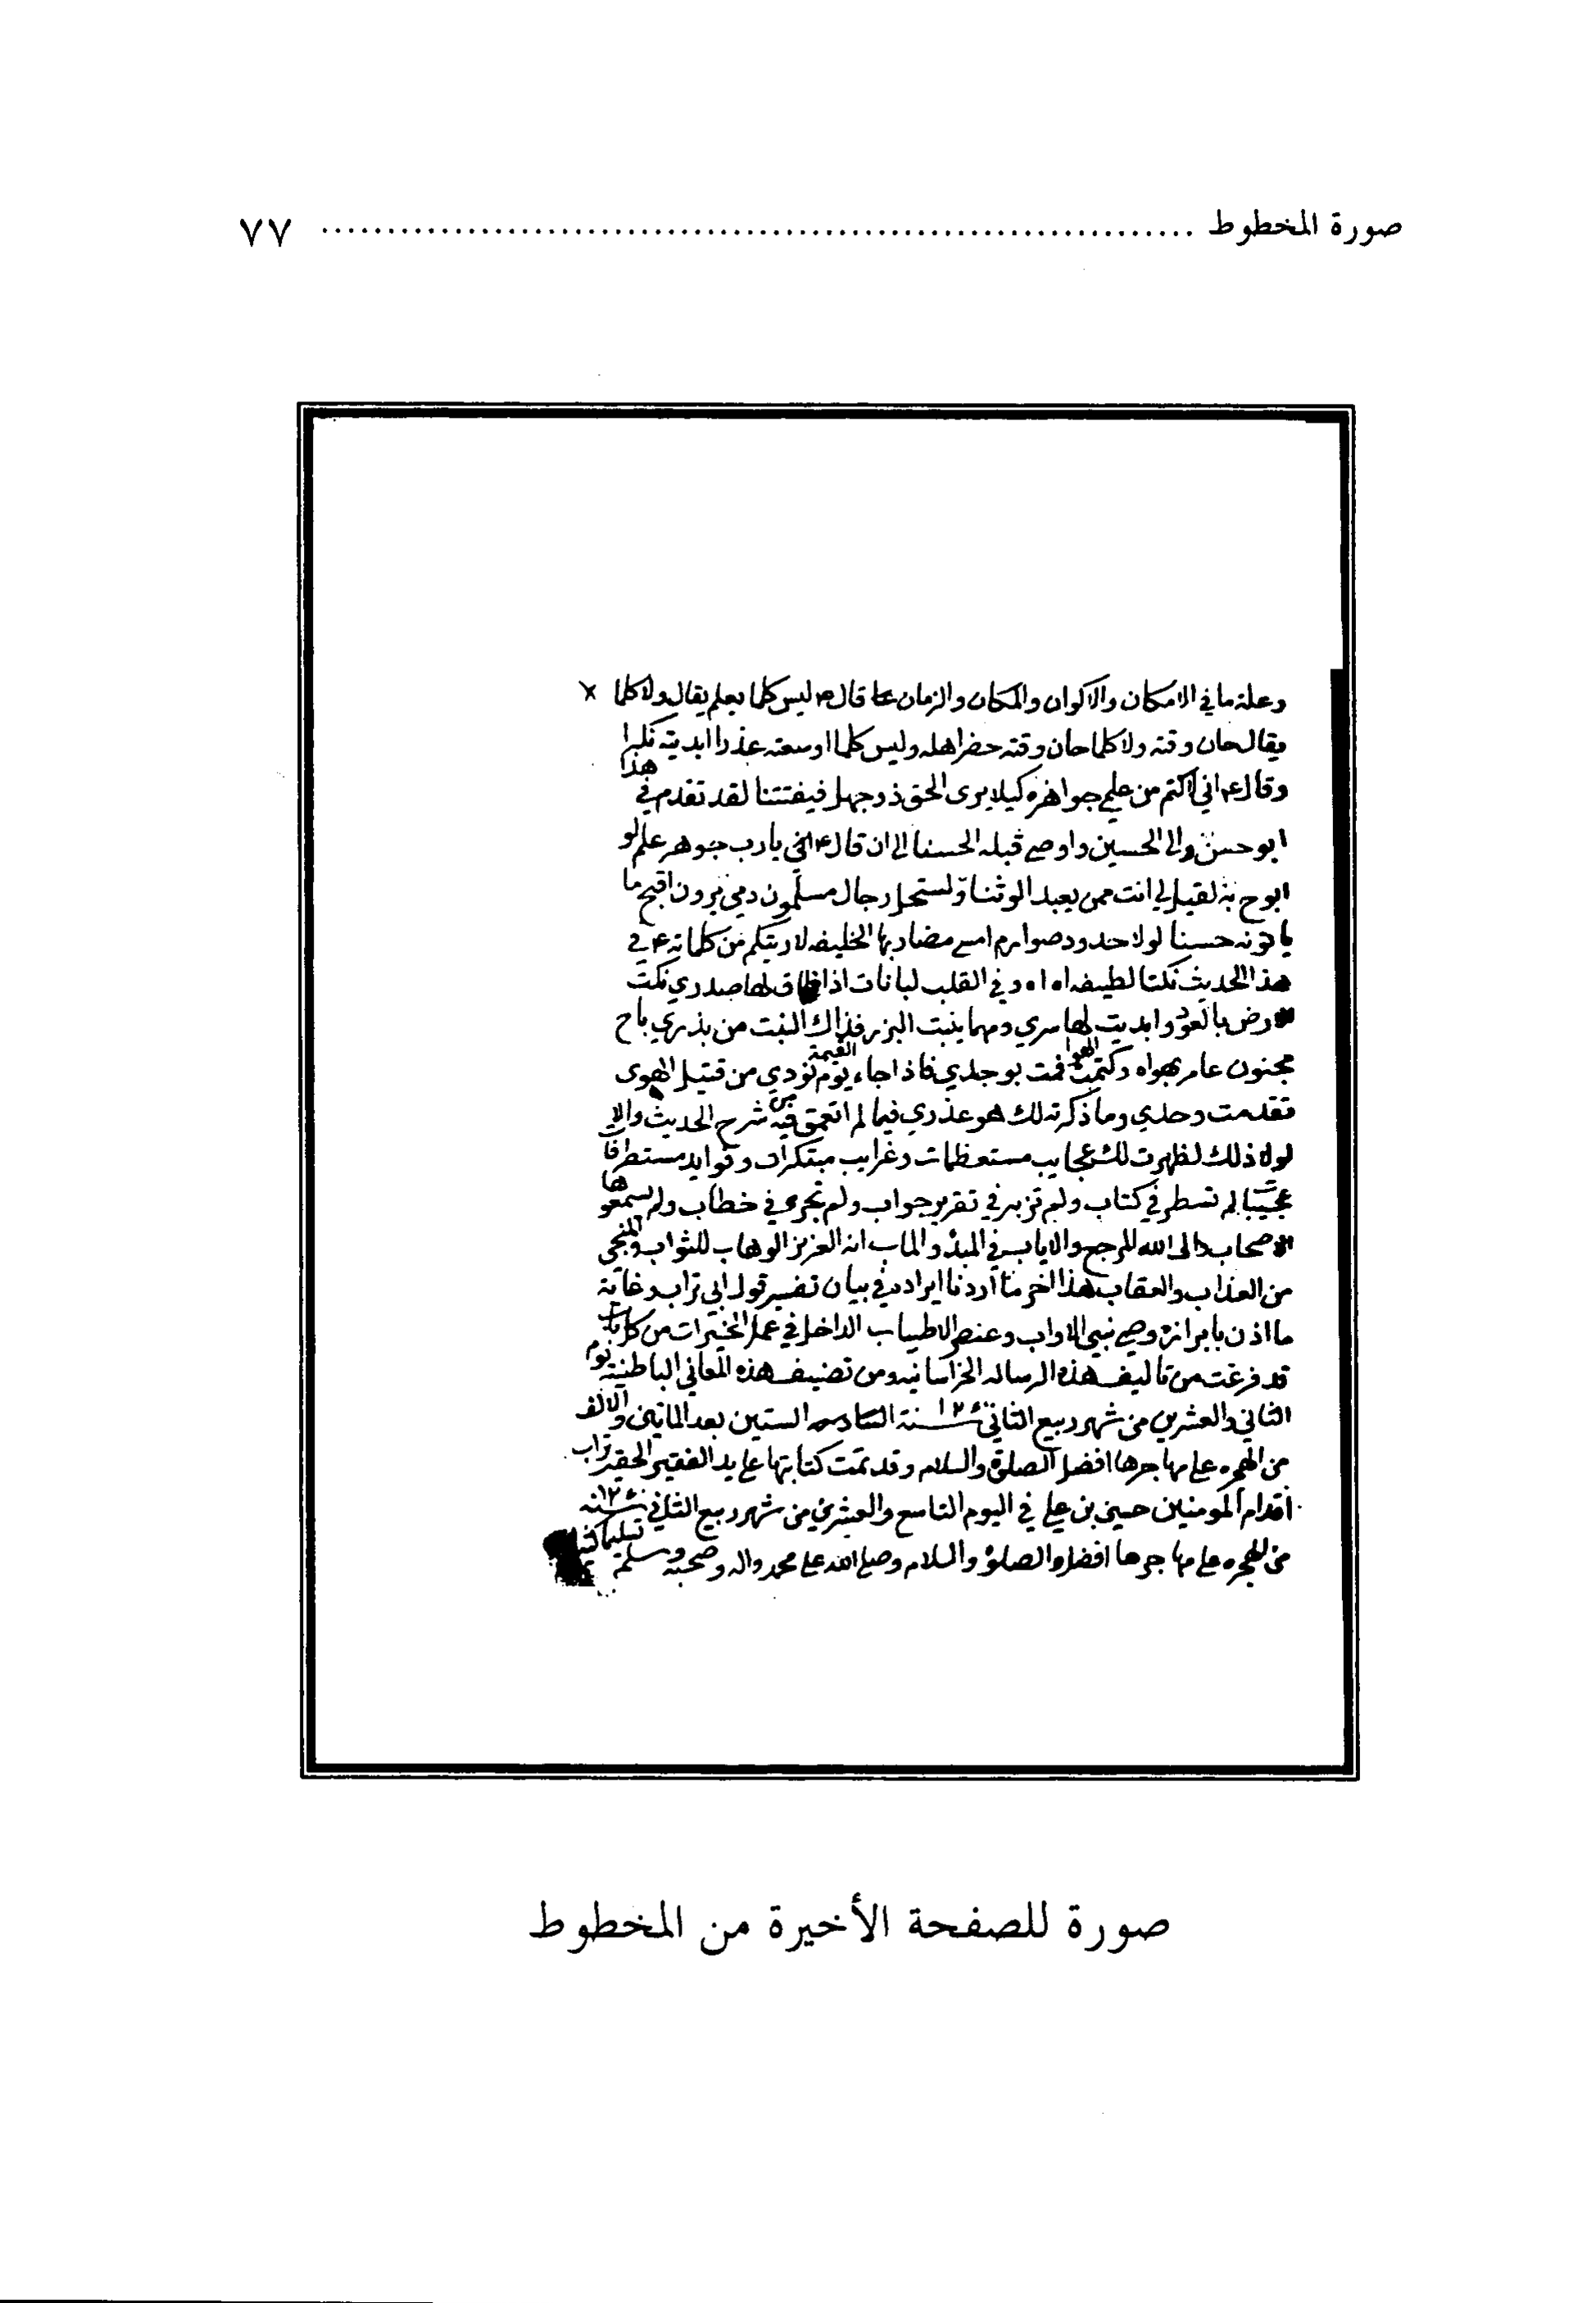 صورة المخطوط ........................................ ٧٧
وعلة ما في الامكان والاكوان والمكان والزمان قال ع ليس كلما يعلم يقال ولا كلما
يقال حان وقته ولا كلما حان وقته حضر اهله وليس كلما اوسعته عذرا ابديته نكرا
وقال ع اني لاكتم من علمي جواهره كيلا يرى الحق ذو جهل فيفتتنا لقد تقدم في هذا
ابو حسن والى الحسين واوصى قبله الحسنا الى ان قال ع يارب جوهر علم لو
ابوح به لقيل لي انت ممن يعبد الوثنا ولستحل رجال مسلمون دمي يرون اقبح ما
ياتونه حسنا لولا حدود صوارم امضى مضاربها الخليفه لاريتكم من كلماته ع في
هذا الحديث نكتا لطيفه اه اه وفي القلب لبانات اذا ضاق لها صدري نكت
الارض بالعود وابديت لها سري ومهما ينبت البزر فذاك النبت من بذري باح
مجنون عامر بهواه وكتمت الهوا فمت بوجدي فاذا جاء يوم القيمة نودي من قتيل الهوى
تقدمت وحدي وما ذكرته لك هو عذري فيما لم اتعمق فيه من شرح الحديث والا
لولا ذلك لظهرت لك عجايب مستعظمات وغرايب مبتكرات وفوايد مستطرفات
لم تسطر في كتاب ولم تزبر في تقرير جواب ولم تجرى في خطاب ولم يسمعوها
الاصحاب والى الله المرجع والاياب في المبدؤ والماب انه العزيز الوهاب للثواب والمنجي
من العذاب والعقاب هذا اخر ما اردنا ايراده في بيان تفسير قول ابي تراب وغاية
ما اذن بابرازه وصي نبي الاواب وعنصر الاطياب الداخل في عمل الخيرات من كل باب
قد فرغت من تاليف هذه الرساله الخراسانيه ومن تصنيف هذه المعاني الباطنية يوم
الثاني والعشرين من شهر ربيع الثاني سنة السادسه الستين بعد الماتين والالف
من الهجره على مهاجرها افضل الصلوة والسلام وقد تمت كتابتها على يد الفقير الحقير تراب
اقدام المومنين حسين بن علي في اليوم التاسع والعشرين من شهر ربيع الثاني سنه
من الهجره على مهاجرها افضل الصلوة والسلام وصلى الله على محمد واله وصحبه وسلم
صورة للصفحة الأخيرة من المخطوط